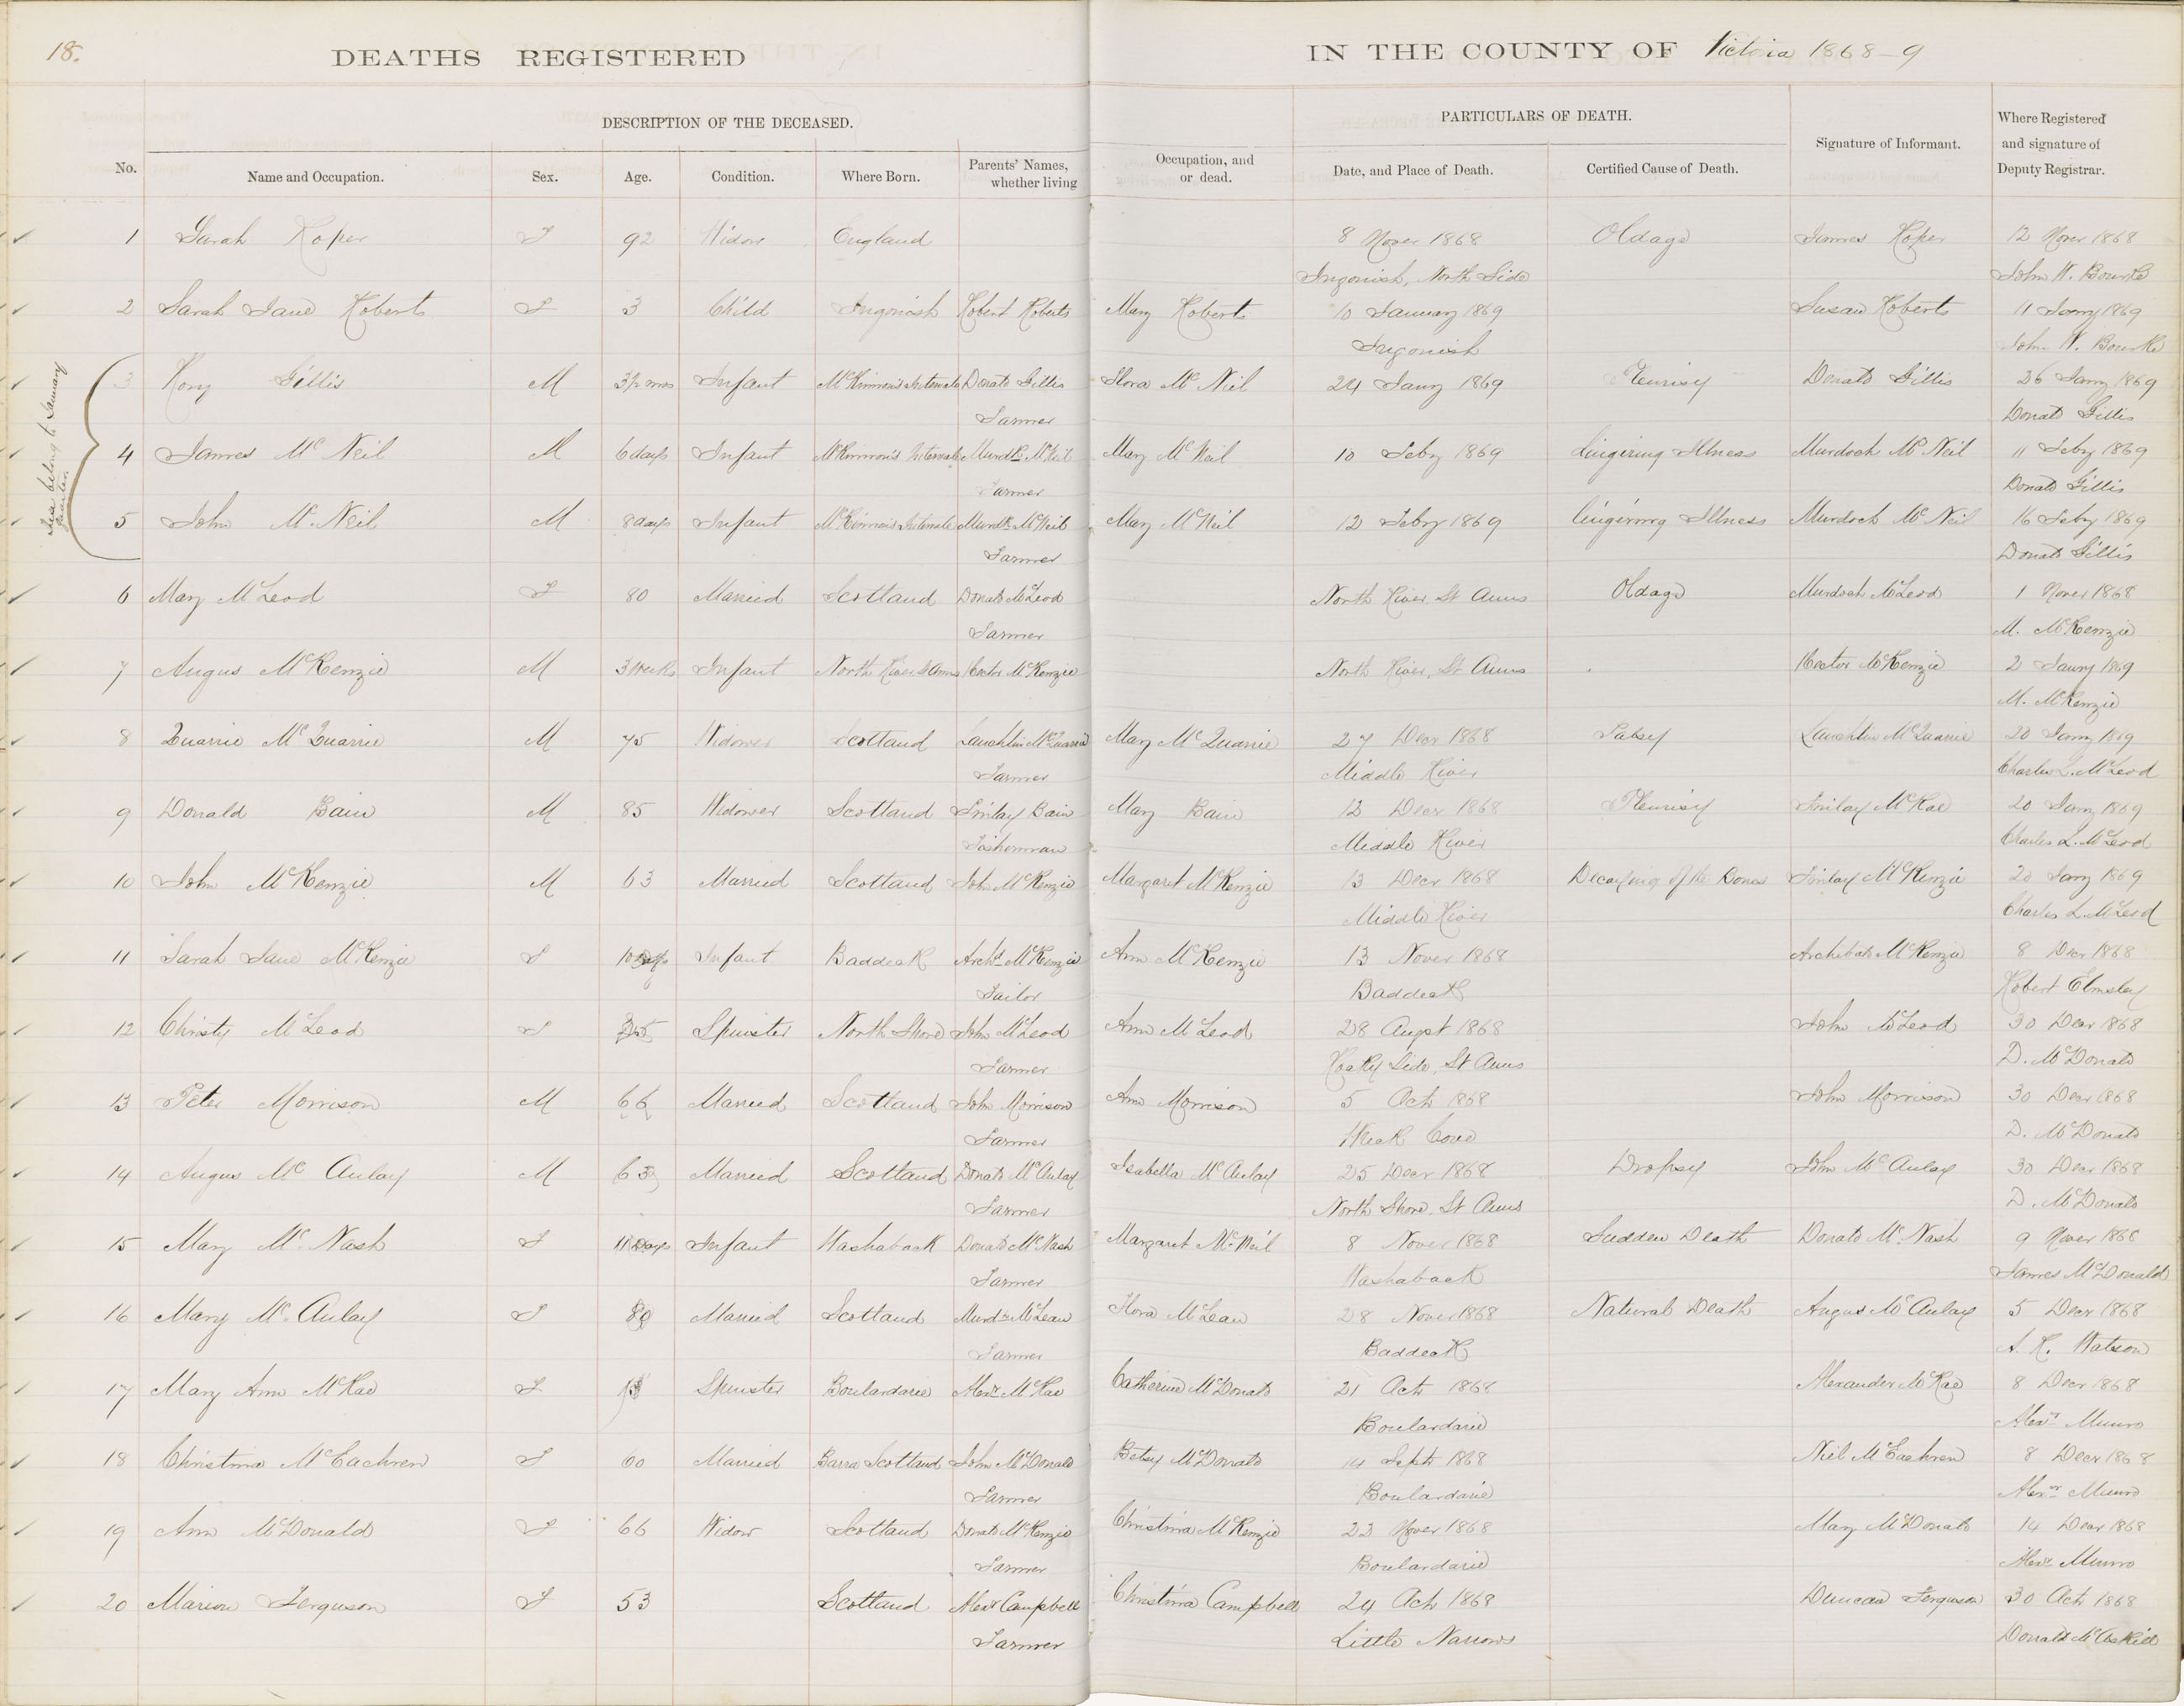 18.
DEATHS REGISTERED IN THE COUNTY OF Victoria 1868-9
DESCRIPTION OF THE DECEASED. PARTICULARS OF DEATH.
No. Name and Occupation. Sex. Age. Condition. Where Born. Parents' Names, whether living Occupation, and or dead. Date, and Place of Death. Certified Cause of Death. Signature of Informant. Where Registered and signature of Deputy Registrar.
1 Sarah Roper F 92 Widow England 8 Nover 1868 Oldage James Roper 12 Nover 1868
Ingonish, North Side John W. Bourke
2 Sarah Jane Roberts F 3 Child Ingonish Robert Roberts Mary Roberts 10 January 1869 Susan Roberts 11 Jany 1869
Ingonish John W. Bourke
belong to January
quarter
3 Rory Gillis M 3½ mos Infant McKinnon's Intervale Donald Gillis Flora McNeil 24 Jany 1869 Pleurisy Donald Gillis 26 Jany 1869
Farmer Donald Gillis
4 James McNeil M 6 days Infant McKinnon's Intervale Murdk McNeil Mary McNeil 10 Feby 1869 Lingiring Illness Murdoch McNeil 11 Feby 1869
Farmer Donald Gillis
5 John McNeil M 8 days Infant McKinnon's Intervale Murdk McNeil Mary McNeil 12 Feby 1869 Lingiring Illness Murdoch McNeil 16 Feby 1869
Farmer Donald Gillis
6 Mary McLeod F 80 Married Scotland Donald McLeod North River, St Anns Oldage Murdoch McLeod 1 Nover 1868
Farmer M. McKenzie
7 Angus McKenzie M 3 weeks Infant North River St Anns Hector McKenzie North River, St Anns Hector McKenzie 2 Jany 1869
M. McKenzie
8 Quarrie McQuarrie M 75 Widower Scotland Lauchlin McQuarrie Mary McQuarrie 27 Decr 1868 Palsey Lauchlin McQuarrie 20 Jany 1869
Farmer Middle River Charles L. McLeod
9 Donald Bain M 85 Widower Scotland Finlay Bain Mary Bain 12 Decr 1868 Pleurisy Finlay McRae 20 Jany 1869
Fisherman Middle River Charles L. McLeod
10 John McKenzie M 63 Married Scotland John McKenzie Margaret McKenzie 13 Decr 1868 Decaying of the Bones Finlay McKenzie 20 Jany 1869
Farmer Middle River Charles L. McLeod
11 Sarah Jane McKenzie F 10 Infant Baddeck Archd McKenzie Ann McKenzie 13 Nover 1868 Archibald McKenzie 8 Decr 1868
Tailor Baddeck Robert Elmsley
12 Christy McLeod F Spinster North Shore John McLeod Ann McLeod 28 Augst 1868 John McLeod 30 Decr 1868
Farmer Side, St Anns D. McDonald
13 Peter Morrison M 66 Married Scotland John Morrison Ann Morrison 5 Octr 1868 John Morrison 30 Decr 1868
Farmer Wreck Cove D. McDonald
14 Angus McAulay M 63 Married Scotland Donald McAulay Isabella McAulay 25 Decr 1868 Dropsy John McAulay 30 Decr 1868
Farmer North Shore, St Anns D. McDonald
15 Mary McNash F 11 Days Infant Washaback Donald McNash Margaret McNeil 8 Nover 1868 Sudden Death Donald McNash 9 Nover 1868
Farmer Washaback James McDonald
16 Mary McAulay F 80 Married Scotland Murdk McLean Flora McLean 28 Nover 1868 Natural Death Angus McAulay 5 Decr 1868
Farmer Baddeck A. K. Watson
17 Mary Ann McRae F Spinster Boulardarie Alexr McRae Catherine McDonald 21 Octr 1868 Alexander McRae 8 Decr 1868
Boulardarie Alexr Munro
18 Christina McEachren F 60 Married Barra Scotland John McDonald Betsy McDonald 14 Septr 1868 Niel McEachren 8 Decr 1868
Farmer Boulardarie Alexr Munro
19 Ann McDonald F 66 Widow Scotland Donald McKenzie Christina McKenzie 23 Nover 1868 Mary McDonald 14 Decr 1868
Farmer Boulardarie Alexr Munro
20 Marion Ferguson F 53 Scotland Alexr Campbell Christina Campbell 24 Octr 1868 Duncan Ferguson 30 Octr 1868
Farmer Little Narrows Donald McAskill